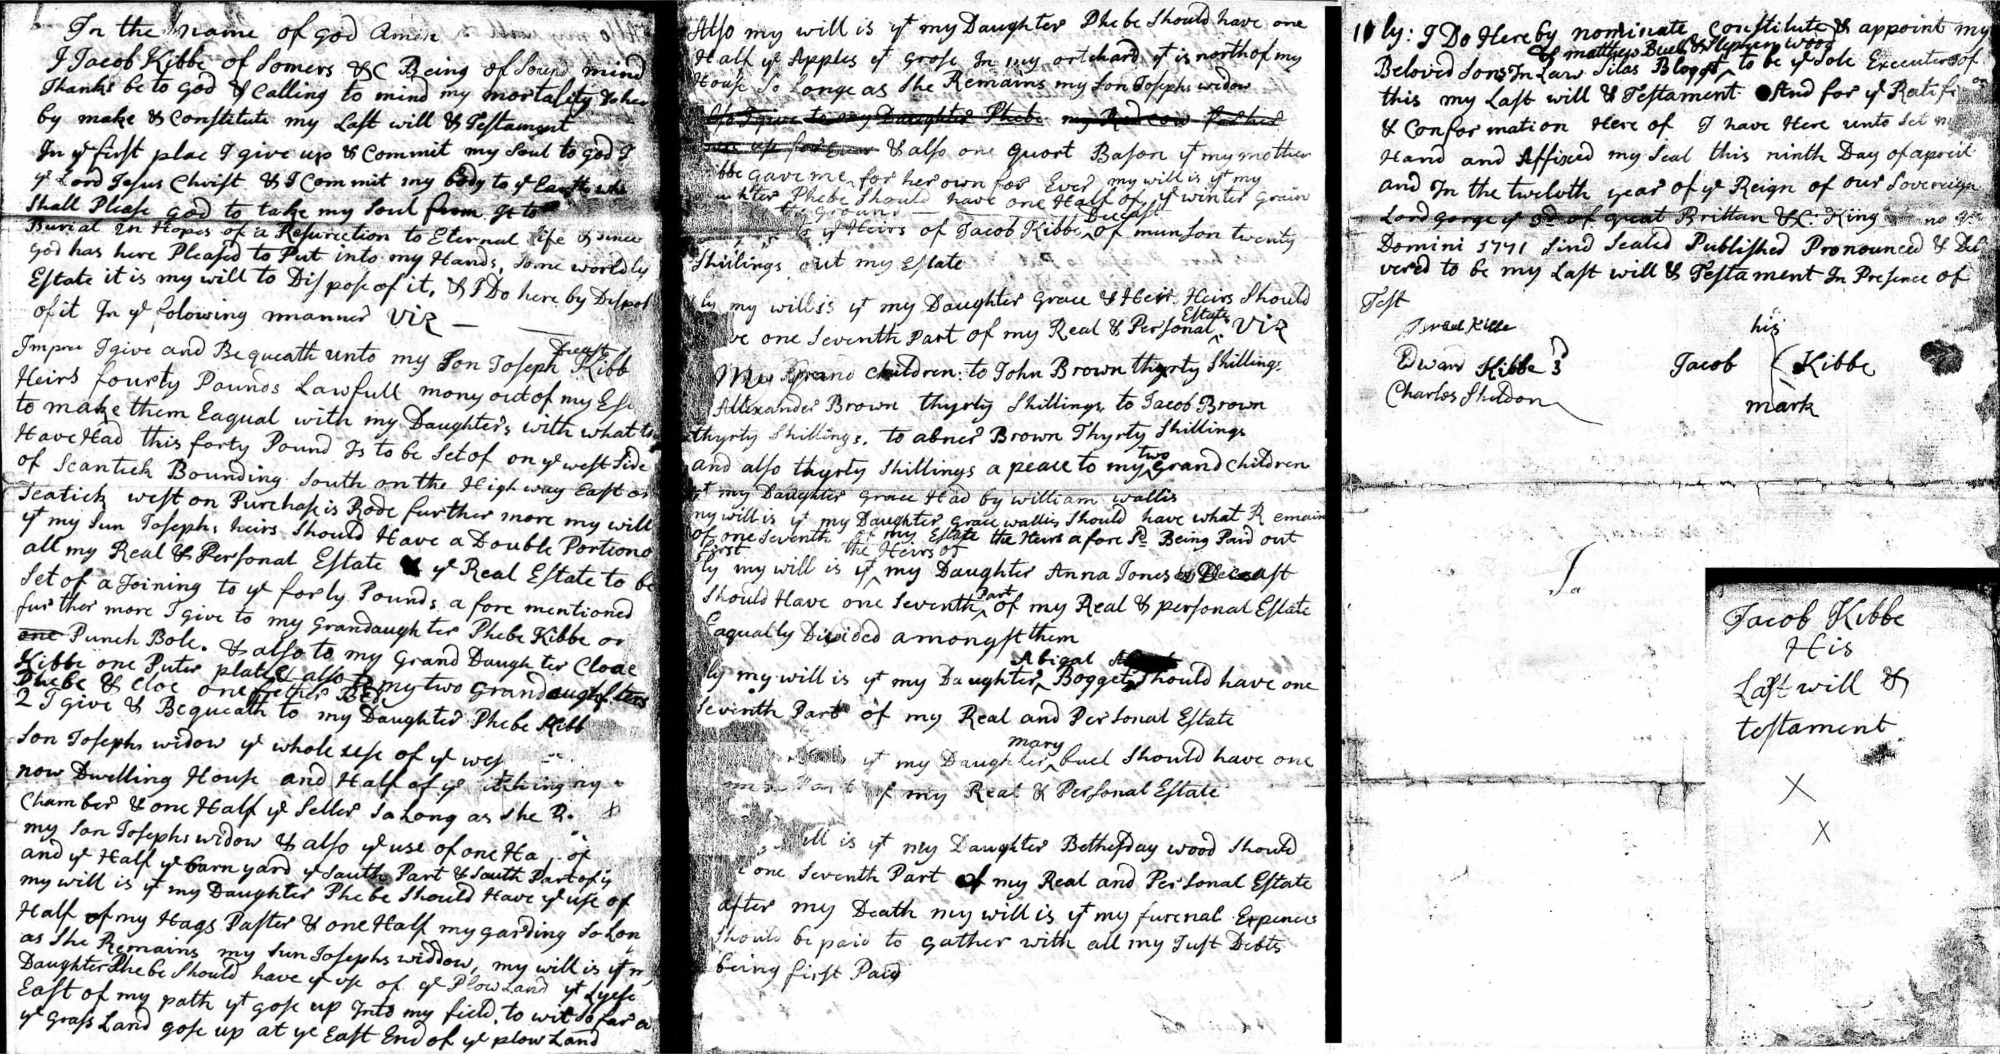 In the name of god Amen
I Jacob Kibbe of Somers &C Being of Sound mind
Thanks be to god & Calling to mind my mortality &
by make & Constitute my Last will & Testament
In ye first plac I give up & Commit my Soul to god
ye Lord Jesus Christ & I Commit my body to ye Earth
Shall Please god to take my Soul from It to
Burial in Hopes of a Resurection to Eternal life & since
god has here Pleased to Put into my Hands, Some worldly
Estate it is my will to Dispose of it, & I Do here by Dispos
of it In ye folowing mannor Viz
Impre I give and Bequeath unto my Son Joseph Kibb Deceast
Heirs fourty Pounds Lawfull mony out of my Es
to make them Eaqual with my Daughters with what
Have Had this forty Pound Is to be Set of on ye west Side
of Scantick Bounding South on the High way East
Scatick west on Purchasis Rode further more my will
yt my Sun Josephs heirs Should Have a Double Portion
all my Real & Personal Estate & ye Real Estate to be
Set of a Joining to ye forly Pounds a fore mentioned
further more I give to my grandaughter Phebe Kibbe or
one Punch Bole. & also to my Grand Daughter Cloae
Kibbe one Puter plate & also to my two Grandaughters
Phebe & Cloe one fether Bed
2 I give & Bequeath to my Daughter Phebe Kibb
Son Josephs widow ye whole use of ye wes
now Dwelling House and Half of ye
Chamber & one Half ye Seller So Long as She R
my Son Josephs widow & also ye use of one Ha of
and ye Half ye barn yard ye South Part & South Part of ye
my will is yt my Daughter Phebe Should Have ye use of
Half of my Hags Paster & one Half my garding So Lon
as She Remains my Sun Josephs widdow, my will is yt m
Daughter Phebe Should have ye use of ye Plow Land yt Lyese
East of my path yt gose up Into my field, to wit So far
ye grass Land gose up at ye East End of ye plow Land
Also my will is yt my Daughter Phebe Should have one
Half ye Apples yt grose In my ortchard yt is north of my
House So Longe as She Remains my Son Josephs widow
I give to my Daughter Phebe my Red cow
& also one Quort Bason yt my mother
bbe gave me for her own for Ever my will is yt my
ughter Phebe Should have one Half of ye winter Grain
Ground
ye Heirs of Jacob Kibbe Deceast of munson twenty
Shillings out my Estate
ly my will is yt my Daughter Grace & Heir Heirs Should
ve one Seventh Part of my Real & Personal Estate Viz
My Grand children: to John Brown thyrty Shillings
Allexander Brown thyrty Shillings, to Jacob Brown
thyrty Shillings, to abner Brown Thyrty Shillings
and also thyrty Shillings a peace to my two Grand children
yt my Daughter Grace Had by william wallis
my will is yt my Daughter Grace wallis Should have what Remain
of one Seventh of my Estate the Heirs a fore Sd Being Paid out
first
ly my will is yt the Heirs of my Daughter Anna Jones Deceast
Should Have one Seventh Part of my Real & personal Estate
Eaqually Divided amongst them
ly my will is yt my Daughter Abigal Bogget Should have one
Seventh Part of my Real and Personal Estate
yt my Daughter mary buel Should have one
Part of my Real & Personal Estate
ill is yt my Daughter Bethesday wood Should
one Seventh Part of my Real and Personal Estate
after my Death my will is yt my furenal Expences
Should be paid to gather with all my Just Debts
being first Paid
11 ly: I Do Hereby nominate Constitute & appoint my
Beloved Sons In Law Silas Blogget & matthew Buel & Stephen wood to be ye Sole Executers of
this my Last will & Testament And for ye Ratifi
& Confor mation Here of I have Here unto Set m
Hand and Affixed my Seal this ninth Day of april
and In the twelvth year of ye Reign of our Sovereign
Lord gorge ye 3d of great Brittan &C: King
Domini 1771 Sind Sealed Published Pronounced & Del
vered to be my Last will & Testament In Presence of
Test
Israel Kibbe
Edward Kibbe
Charles Sheldon
his
Jacob Kibbe
mark
Ja
Jacob Kibbe
His
Last will &
testament
X
X